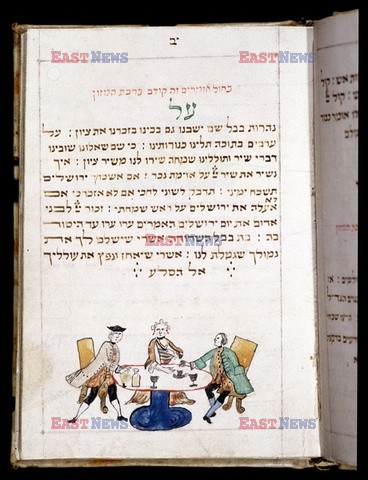 יב
EASTNEWS EASTNEWS
בחול אומרים זה קודם ברכת המזון
על
נהרות בבל שם ישבנו גם בכינו בזכרנו את ציון : על
ערבים בתוכה תלינו כנורותינו : כי שם שאלונו שובינו
דברי שיר ותוללינו שמחה שירו לנו משיר ציון : איך
נשיר את שיר על אדמת נכר : אם אשכחך ירושלים
תשכח ימיני : תדבק לשוני לחכי אם לא אזכרכי אם
לא אעלה את ירושלים על ראש שמחתי : זכור לבני
אדום את יום ירושלים האמרים ערו ערו עד היסוד
בה : בת בבל אשרי שישלם לך את
EASTNEWS
גמולך שגמלת לנו : אשרי שיאחז ונפץ את עולליך
אל הסלע
EASTNEWS EASTNEWS